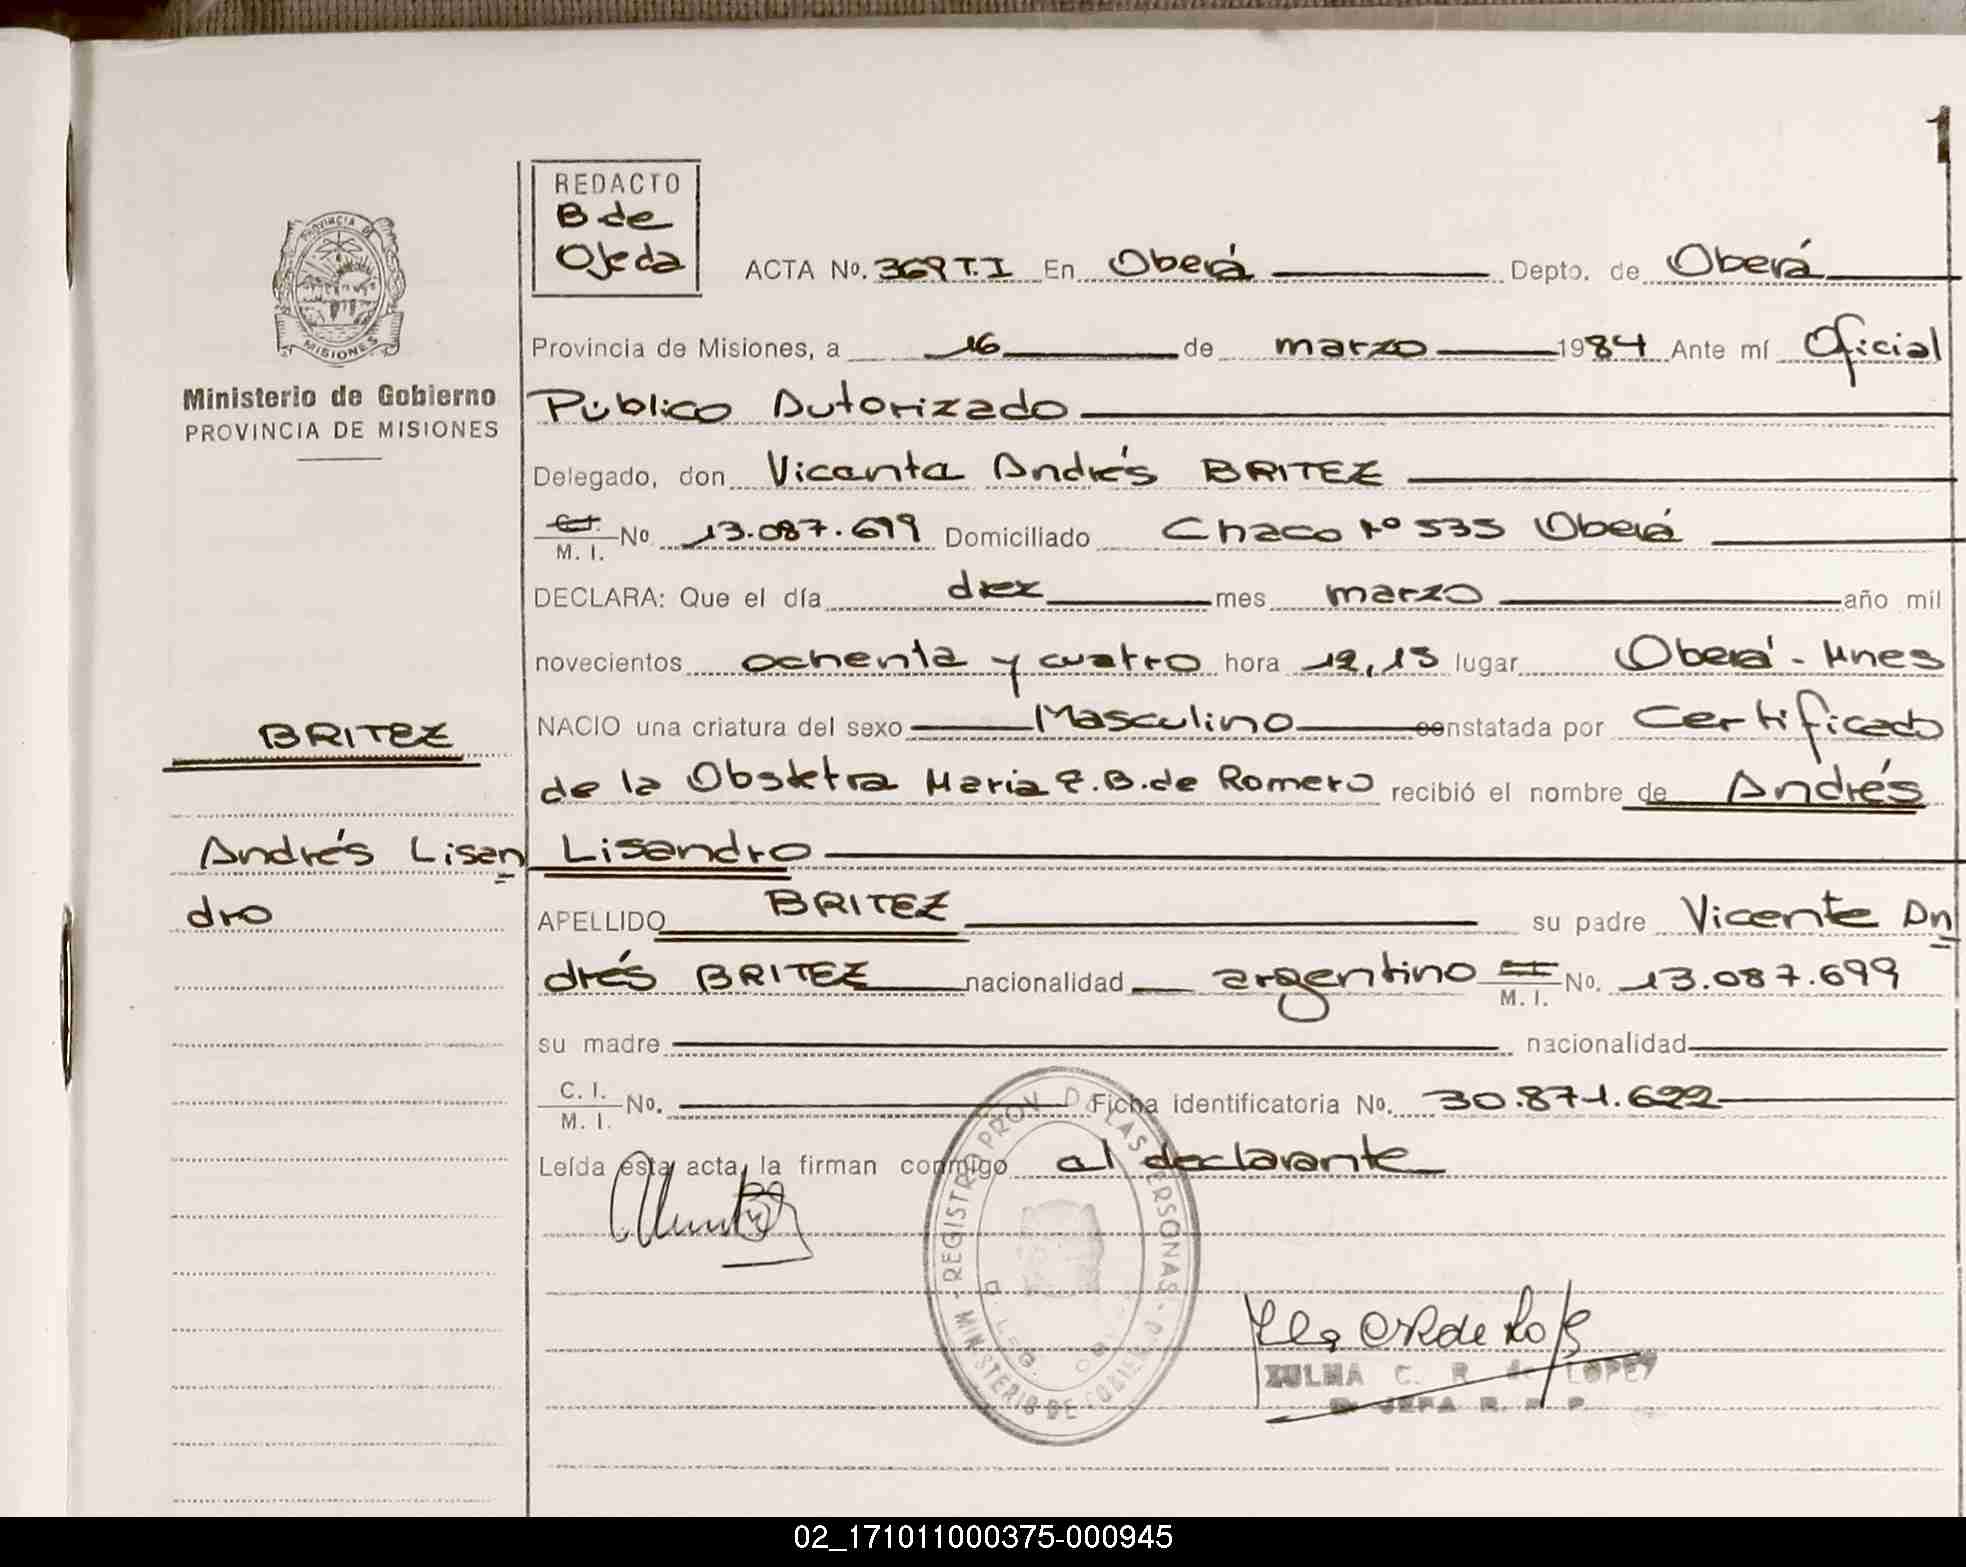 1
REDACTO
B de
Ojeda
PROVINCIA DE
MISIONES
Ministerio de Gobierno
PROVINCIA DE MISIONES
ACTA No. 369 T.I En Oberá Depto. de Oberá
Provincia de Misiones, a 16 de marzo 1984 Ante mí Oficial
Público Autorizado
Delegado, don Vicente Andrés BRITEZ
C.I. M. I. No 13.087.699 Domiciliado Chaco Nº 535 Oberá
DECLARA: Que el día diez mes marzo año mil
novecientos ochenta y cuatro hora 12,15 lugar Oberá - Mnes
NACIO una criatura del sexo Masculino constatada por Certificado
de la Obstetra Maria E. B. de Romero recibió el nombre de Andrés
Lisandro
BRITEZ
Andrés Lisan
dro
APELLIDO BRITEZ su padre Vicente An
drés BRITEZ nacionalidad argentino M. I. No. 13.087.699
su madre nacionalidad
C. I. M. I. No. Ficha identificatoria No. 30.871.622
Leída esta acta, la firman conmigo el declarante
REGISTRO PROV. D LAS PERSONAS
MINISTERIO DE GOBIERNO
ZULMA C. R. de LOPEZ
JEFA R. P. P.
02_171011000375-000945